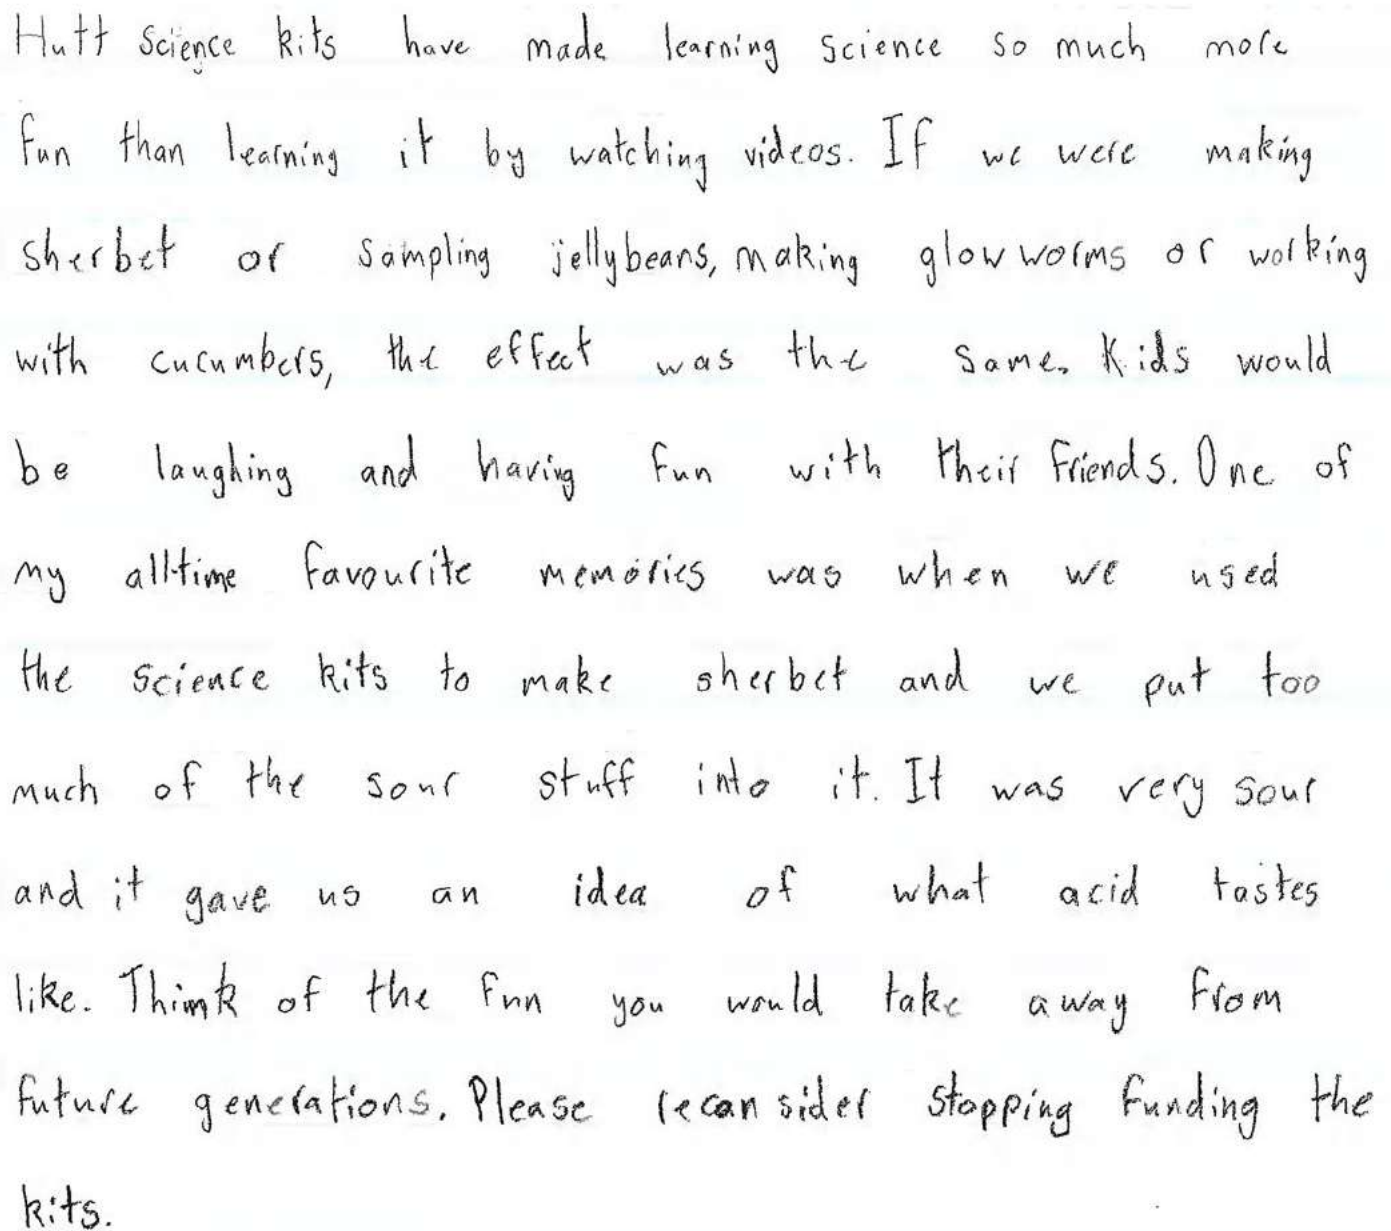 Hutt Science kits have made learning science so much more
fun than learning it by watching videos. If we were making
sherbet or sampling jellybeans, making glow worms or working
with cucumbers, the effect was the same. Kids would
be laughing and having fun with their friends. One of
my all-time favourite memories was when we used
the science kits to make sherbet and we put too
much of the sour stuff into it. It was very sour
and it gave us an idea of what acid tastes
like. Think of the fun you would take away from
future generations. Please recansider stopping funding the
kits.